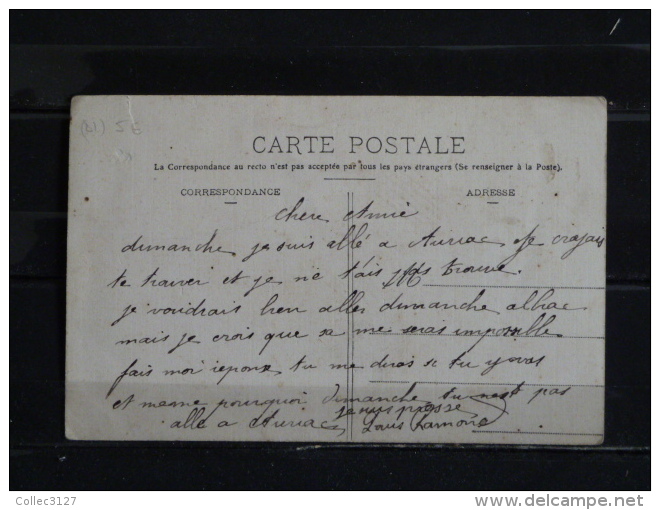 (21.) 5E
CARTE POSTALE
La Correspondance au recto n'est pas acceptée par tous les pays étrangers (Se renseigner à la Poste).
CORRESPONDANCE
ADRESSE
chere Amie
dimanche je suis allé a Auriac Je crajais
te trouver et je ne t'ais pas trouve.
je voudrais bien aller dimanche albiac
mais je crois que sa me seras impossible
fais moi reponse tu me diras si tu y vas
et meme pourquoi dimanche tu nest pas
alle a Auriac je suis presse
Louis Ramond
Collec3127
delcampe.net